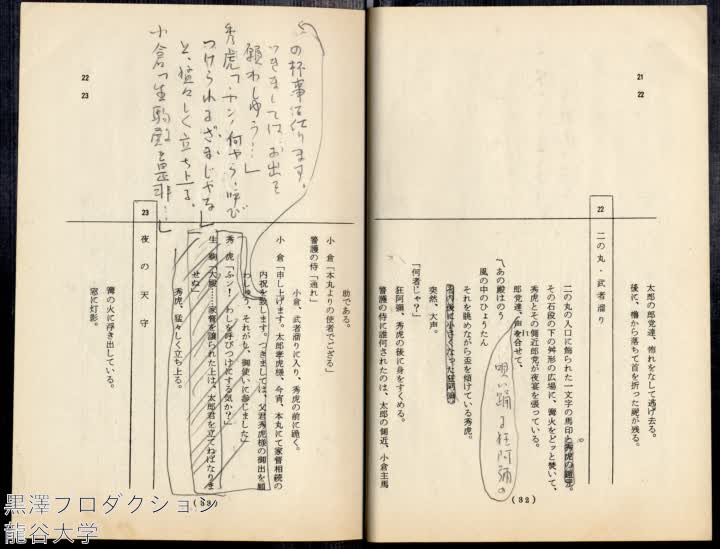 21
22
太郎の郎党達、怖れをなして逃げ去る。
後に、櫓から落ちて首を折った屍が残る。
22
二の丸・武者溜り
二の丸の入口に飾られた一文字の馬印と秀虎の
その石段の下の舛形の広場に、篝火をどッと焚いて、
秀虎とその側近郎党が夜宴を張っている。
郎党達、声を合せて、
唄い踊る狂阿弥の
〽あの殿はのう
風の中のひょうたん
それを眺めながら盃を傾けている秀虎。
その後に小さくなった狂阿弥。
突然、大声。
「何者じゃ?」
狂阿弥、秀虎の後に身をすくめる。
警護の侍に誰何されたのは、太郎の側近、小倉主馬
(32)
22
23
助である。
小倉「本丸よりの使者でござる」
警護の侍「通れ」
小倉、武者溜りに入り、秀虎の前に跪く。
小倉「申し上げます。太郎孝虎様、今宵、本丸にて家督相続の
内祝を致します。つきましては、父君秀虎様の御出を願
わしゅう、それがし、御使いに参じました」
秀虎「ふン!わしを呼びつけにする気か?」
生駒「大殿……家督を譲られた上は、太郎君を立てねばなりま
せぬ」
秀虎、猛々しく立ち上る。
の杯事を仕ります。
つきましては、お出を
願わしゅう…」
秀虎「フン!何やう、呼び
つけられるざまじゃな
と、猛々しく立ち上る。
小倉「生駒殿も是非…」
23
夜の天守
篝の火に浮き出している。
窓に灯影。
(33)
黒澤プロダクション
龍谷大学